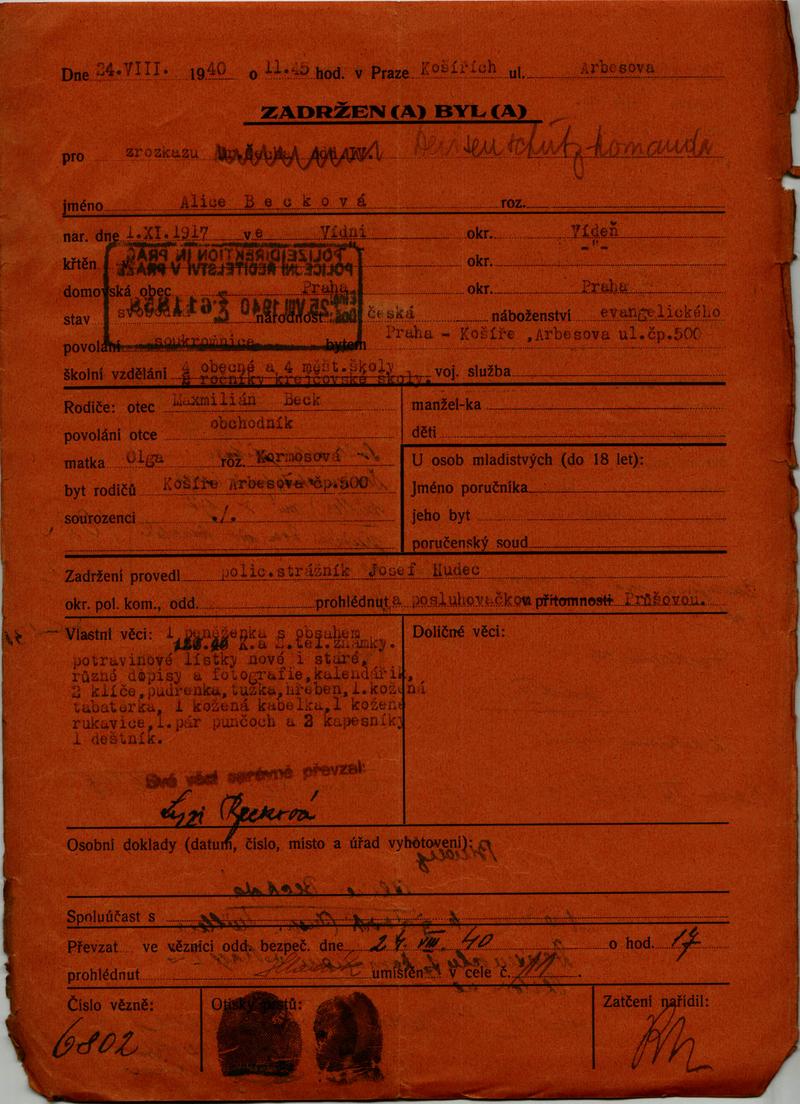 Dne 24.VIII. 1940 o 11.45 hod. v Praze Košířích ul. Arbesova
ZADRŽEN(A) BYL(A)
pro zrozkazu
jméno Alice Becková roz.
nar. dne 1.XI.1917 ve Vídni okr. Vídeň
POLIZEIDIREKTION IN PRAG
POLICEJNÍ ŘEDITELSTVÍ V PRAZE
křtěn okr. -"-
domovská obec Praha okr. Praha
25 VIII 1940
stav svobodná národnost česká náboženství evangelického
povolání soukromnice bytem Praha - Košíře ,Arbesova ul.čp.500
školní vzdělání 4 obecné a 4 měšt.školy voj. služba
2 ročníky krejčovské školy.
Rodiče: otec Maxmilián Beck
manžel-ka
povolání otce obchodník
děti
matka Olga roz. Kormosová
U osob mladistvých (do 18 let):
byt rodičů Košíře Arbesova čp.500
Jméno poručníka
sourozenci ./.
jeho byt
poručenský soud
Zadržení provedl polic.strážník Josef Hudec
okr. pol. kom., odd. prohlédnuta posluhovačkou přítomnosti Průšovou.
Vlastní věci: 1 peněženka s obsahem
K.a tel.známky.
Doličné věci:
potravinové lístky nové i staré,
různé dopisy a fotografie,kalendářík,
2 klíče,pudřenka,tužka,hřeben,1.kožená
tabatěrka, 1 kožená kabelka,1 kožené
rukavice,1.pár punčoch a 2 kapesníky
1 deštník.
Své věci správně převzal:
Becková
Osobní doklady (datum, číslo, místo a úřad vyhotovení):
Spoluúčast s
Převzat ve věznici odd. bezpeč. dne 24. VIII. 40 o hod. 17
prohlédnut umístěn v cele č. 11.
Číslo vězně:
Otisky prstů:
Zatčení nařídil:
6802